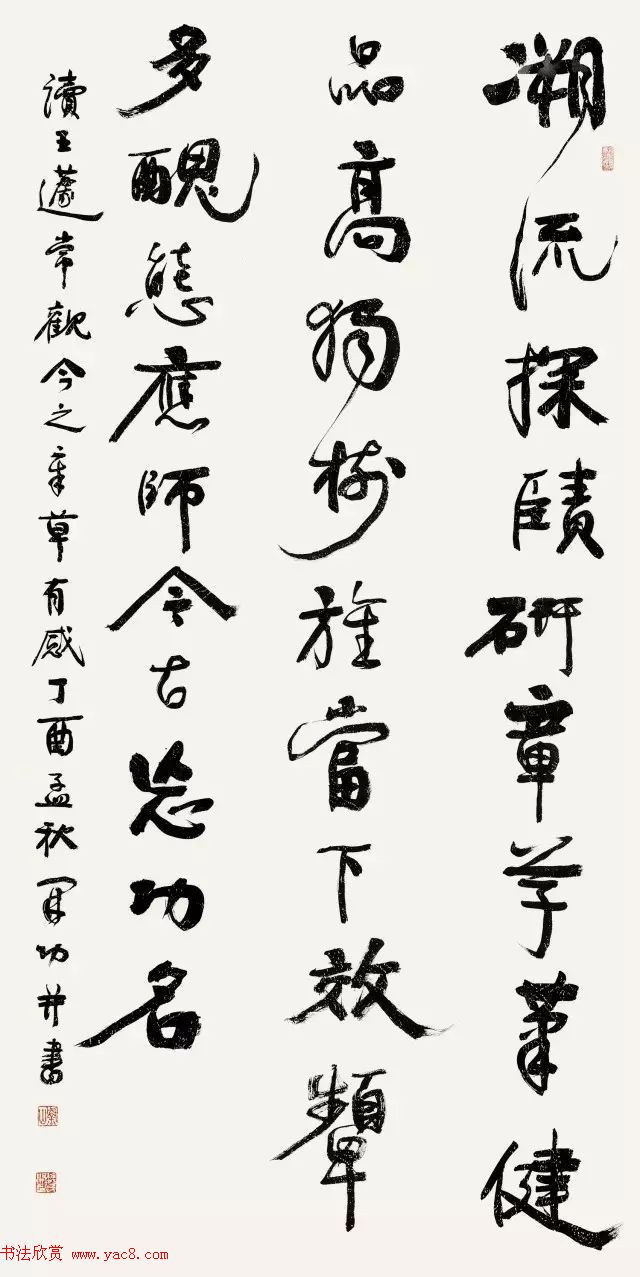 溯流探賾研章草筆健
品高獨樹旌當下效顰
多醜態應師今古忘功名
讀王蘧常觀今之章草有感丁酉孟秋功并書
书法欣赏 www.yac8.com